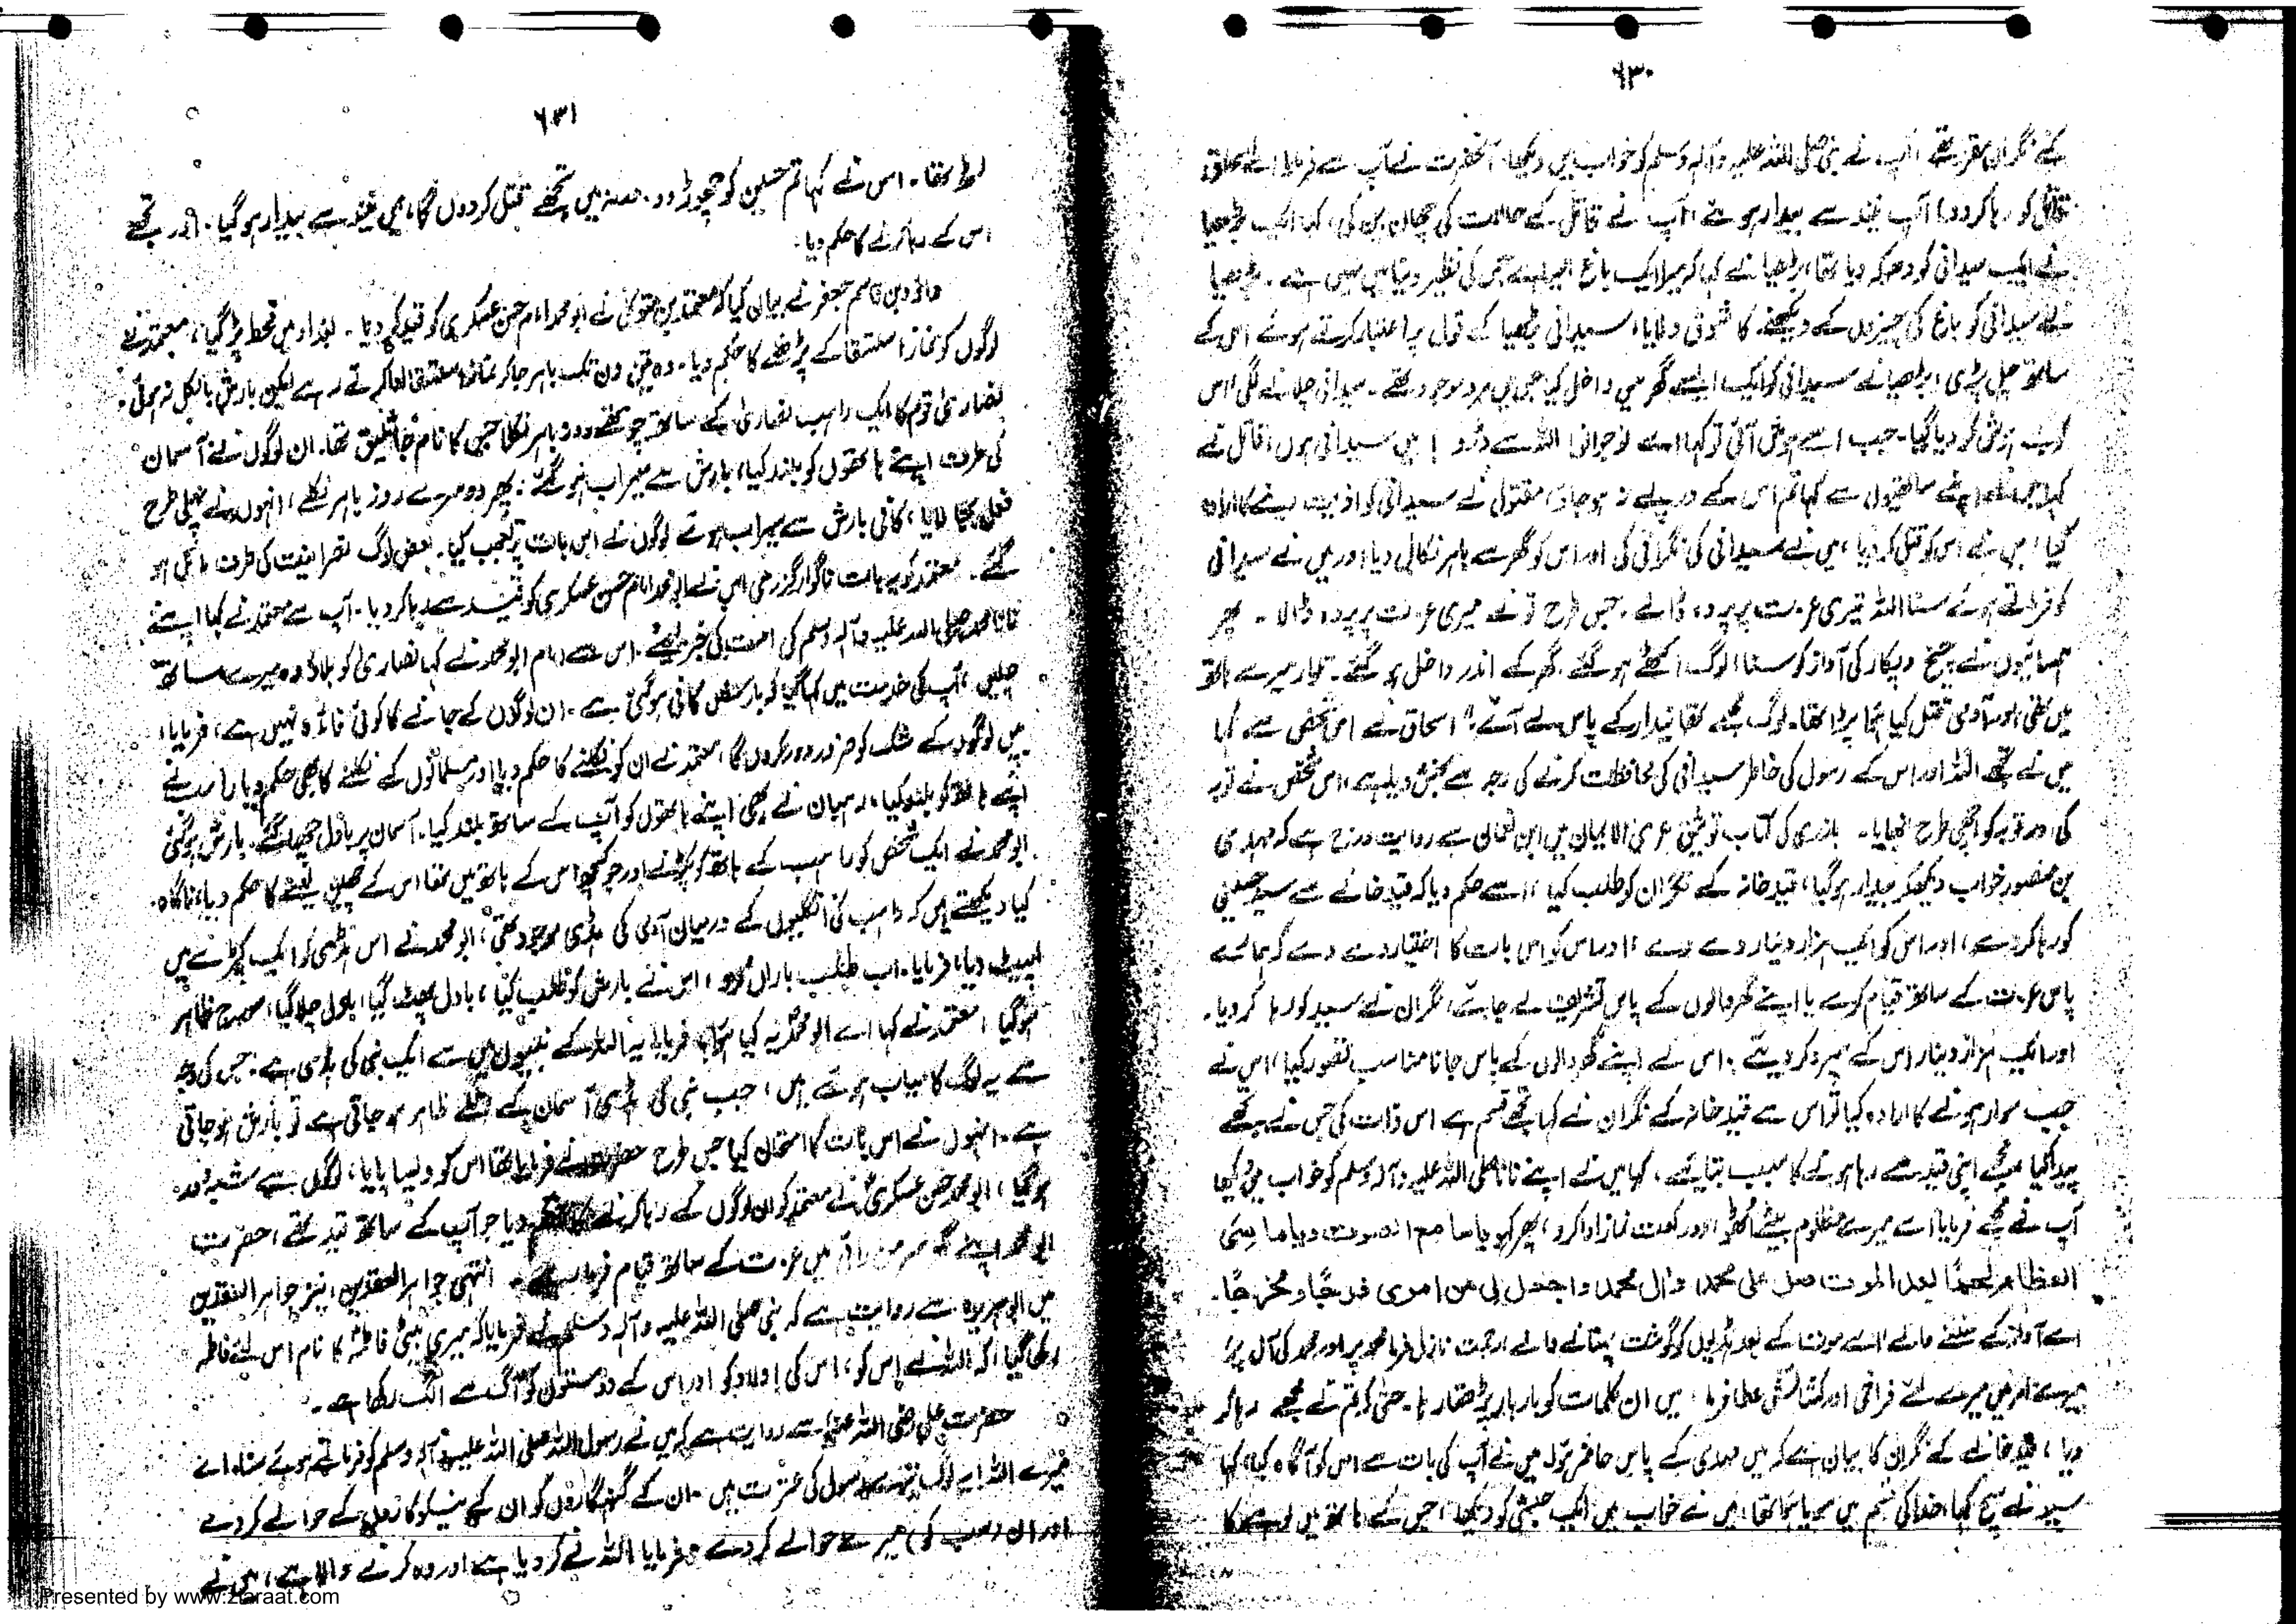 ۶۳۰
کے نگران مقرر تھے، آپ نے نبی صلی اللہ علیہ وآلہ وسلم کو خواب میں دیکھا، آنحضرت نے آپ سے فرمایا اے اسحاق
قاتل کو رہا کر دو، آپ نیند سے بیدار ہوئے، آپ نے قاتل کے حالات کی چھان بین کی، کہا ایک بڑھیا
نے ایک سیدانی کو دھوکہ دیا تھا، بڑھیا نے کہا کہ میرا ایک باغ ایسا ہے جس کی نظیر دنیا میں نہیں ہے۔ بڑھیا
نے سیدانی کو باغ کی چیزوں کے دیکھنے کا شوق دلایا، سیدانی بڑھیا کے قول پر اعتبار کرتے ہوئے اس کے
ساتھ چل پڑی، بڑھیا نے سیدانی کو ایک ایسے گھر میں داخل کیا جس میں مرد موجود تھے۔ سیدانی چلانے لگی اس
کو بے ہوش کر دیا گیا۔ جب اسے ہوش آئی تو کہا اے نوجوانو! اللہ سے ڈرو! میں سیدانی ہوں، قاتل نے
کہا میں نے اپنے ساتھیوں سے کہا تم اس کے درپے نہ ہو جاؤ، مقتول نے سیدانی کو اذیت دینے کا ارادہ
کیا، میں نے اس کو قتل کر دیا، میں نے سیدانی کی نگرانی کی اور اس کو گھر سے باہر نکال دیا اور میں نے سیدانی
کو فرماتے ہوئے سنا اللہ تیری عزت پر پردہ ڈالے۔ جس طرح تو نے میری عزت پر پردہ ڈالا۔ پھر
ہمسائیوں نے چیخ و پکار کی آواز کو سنا، لوگ اکٹھے ہو گئے۔ گھر کے اندر داخل ہو گئے۔ تلوار میرے ہاتھ
میں تھی اور آدمی قتل کیا ہوا پڑا تھا۔ لوگ مجھے تھانیدار کے پاس لے آئے۔" اسحاق نے اس شخص سے کہا
میں نے تجھے اللہ اور اس کے رسول کی خاطر سیدانی کی محافظت کرنے کی وجہ سے بخش دیا ہے، اس شخص نے توبہ
کی اور توبہ کو اچھی طرح نبھایا۔ بازری کی کتاب توثیق عری الایمان میں ابن نعمان سے روایت درج ہے کہ مہدی
بن منصور خواب دیکھ کر بیدار ہو گیا، قید خانہ کے نگران کو طلب کیا، اسے حکم دیا کہ قید خانے سے سید حسینی
کو رہا کر دے، اور اس کو ایک ہزار دینار دے دے، اور اس کو اس بات کا اختیار دے دے کہ ہمارے
پاس عزت کے ساتھ قیام کرے یا اپنے گھر والوں کے پاس تشریف لے جائے، نگران نے سید کو رہا کر دیا۔
اور ایک ہزار دینار اس کے سپرد کر دیئے۔ اس نے اپنے گھر والوں کے پاس جانا مناسب تصور کیا، اس نے
جب سوار ہونے کا ارادہ کیا تو اس سے قید خانہ کے نگران نے کہا تجھے قسم ہے اس ذات کی جس نے تجھے
پیدا کیا مجھے اپنی قید سے رہا ہونے کا سبب بتائیے۔ کہا میں نے اپنے نانا صلی اللہ علیہ وآلہ وسلم کو خواب میں دیکھا
آپ نے مجھے فرمایا اے میرے مظلوم بیٹے اٹھو! اور دو رکعت نماز ادا کرو، پھر کہو یا سامع الصوت ویا ماسی
العظام لحما بعد الموت صل علی محمد وال محمد واجعل لی من امری فرجا ومخرجا۔
اے آواز کے سننے والے اے موت کے بعد ہڈیوں کو گوشت پہنانے والے رحمت نازل فرما محمد پر اور محمد کی آل پر
میرے امر میں میرے لئے فراخی اور کشائش عطا فرما، میں ان کلمات کو بار بار پڑھتا رہا۔ حتیٰ کہ تم نے مجھے رہا کر
دیا، قید خانے کے نگران کا بیان ہے کہ میں مہدی کے پاس حاضر ہوا میں نے آپ کی بات سے اس کو آگاہ کیا، کہا
سید نے سچ کہا، خدا کی قسم میں سویا ہوا تھا، میں نے خواب میں ایک حبشی کو دیکھا، جس کے ہاتھ میں لوہے کا
۶۳۱
لٹھ تھا۔ اس نے کہا تم حسین کو چھوڑ دو۔ ورنہ میں تجھے قتل کر دوں گا، میں نیند سے بیدار ہو گیا۔ اور تجھے
اس کے رہا کرنے کا حکم دیا۔
داؤد بن قاسم جعفر نے بیان کیا کہ معتمد بن متوکل نے ابو محمد امام حسن عسکری کو قید کر دیا۔ بغداد میں قحط پڑ گیا، معتمد نے
لوگوں کو نماز استسقا کے پڑھنے کا حکم دیا۔ وہ تین دن تک باہر جا کر نماز استسقا ادا کرتے رہے لیکن بارش بالکل نہ ہوئی۔
نصاریٰ قوم کا ایک راہب نصاریٰ کے ساتھ چوتھے روز باہر نکلا جس کا نام جاثلیق تھا۔ ان لوگوں نے آسمان
کی طرف اپنے ہاتھوں کو بلند کیا، بارش سے سیراب ہو گئے۔ پھر دوسرے روز باہر نکلے، انہوں نے پہلی طرح
فعل بجا لایا، کافی بارش سے سیراب ہوئے لوگوں نے اس بات پر تعجب کیا۔ بعض لوگ نصرانیت کی طرف مائل ہو
گئے۔ معتمد کو یہ بات ناگوار گزری اس نے ابو محمد امام حسن عسکری کو قید سے رہا کر دیا۔ آپ سے معتمد نے کہا اپنے
نانا محمد صلی اللہ علیہ وآلہ وسلم کی امت کی خبر لیجئے۔ اس سے امام ابو محمد نے کہا نصاریٰ کو بلاؤ وہ میرے ساتھ
چلیں، آپ کی خدمت میں کہا گیا کہ بارش کافی ہو گئی ہے۔ ان لوگوں کے جانے کا کوئی فائدہ نہیں ہے، فرمایا،
میں لوگوں کے شک کو ضرور دور کروں گا، معتمد نے ان کو نکلنے کا حکم دیا اور مسلمانوں کے نکلنے کا بھی حکم دیا راہب نے
اپنے ہاتھ کو بلند کیا، رہبان نے بھی اپنے ہاتھوں کو آپ کے ساتھ بلند کیا۔ آسمان پر بادل چھا گئے۔ بارش ہو گئی
ابو محمد نے ایک شخص کو راہب کے ہاتھ کو پکڑنے اور جو کچھ اس کے ہاتھ میں تھا اس کے چھین لینے کا حکم دیا، ناگاہ
کیا دیکھتے ہیں کہ راہب کی انگلیوں کے درمیان آدمی کی ہڈی موجود تھی، ابو محمد نے اس ہڈی کو ایک کپڑے میں
لپیٹ دیا، فرمایا۔ اب طلب باراں کرو، اس نے بارش کو طلب کیا، بادل پھٹ گیا، بادل چلا گیا، سورج ظاہر
ہو گیا، معتمد نے کہا اے ابو محمد یہ کیا ہوا، فرمایا یہ اللہ کے نبیوں میں سے ایک نبی کی ہڈی ہے۔ جس کی وجہ
سے یہ لوگ کامیاب ہوتے ہیں، جب نبی کی ہڈی آسمان کے تلے ظاہر ہو جاتی ہے تو بارش ہو جاتی
ہے۔ انہوں نے اس بات کا امتحان کیا جس طرح حضرت نے فرمایا تھا اس کو ویسا پایا، لوگوں سے شبہ دور
ہو گیا، ابو محمد حسن عسکریؑ نے معتمد کو ان لوگوں کے رہا کرنے کا حکم دیا جو آپ کے ساتھ قید تھے، حضرت
ابو محمد اپنے گھر سر من رائی میں عزت کے ساتھ قیام فرما رہے۔ انتہی جواہر العقدین، نیز جواہر العقدین
میں ابوہریرہ سے روایت ہے کہ نبی صلی اللہ علیہ وآلہ وسلم نے فرمایا کہ میری بیٹی فاطمہؑ کا نام اس لئے فاطمہ
رکھا گیا، کہ اللہ نے اس کو، اس کی اولاد کو اور اس کے دوستوں کو آگ سے الگ رکھا ہے۔
حضرت علی رضی اللہ عنہ سے روایت ہے کہ میں نے رسول اللہ صلی اللہ علیہ وآلہ وسلم کو فرماتے ہوئے سنا، اے
میرے اللہ! یہ لوگ تیرے رسول کی عترت ہیں۔ ان کے گنہگاروں کو ان کے نیکوکاروں کے حوالے کر دے
اور ان سب کو میرے حوالے کر دے، فرمایا اللہ نے کر دیا ہے اور وہ کرنے والا ہے، میں نے
Presented by www.ziaraat.com